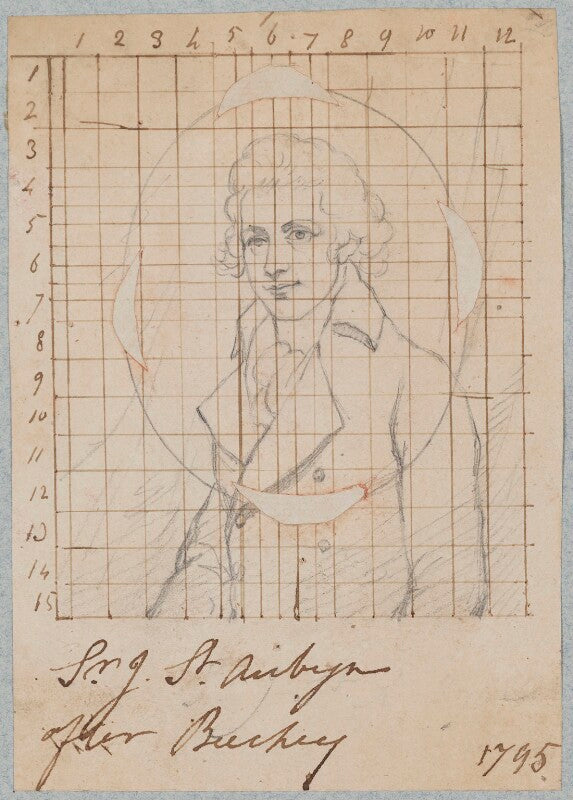 1 2 3 4 5 6 7 8 9 10 11 12
1
2
3
4
5
6
7
8
9
10
11
12
13
14
15
Sr. J. St. Aubyn
after Beechey
1795